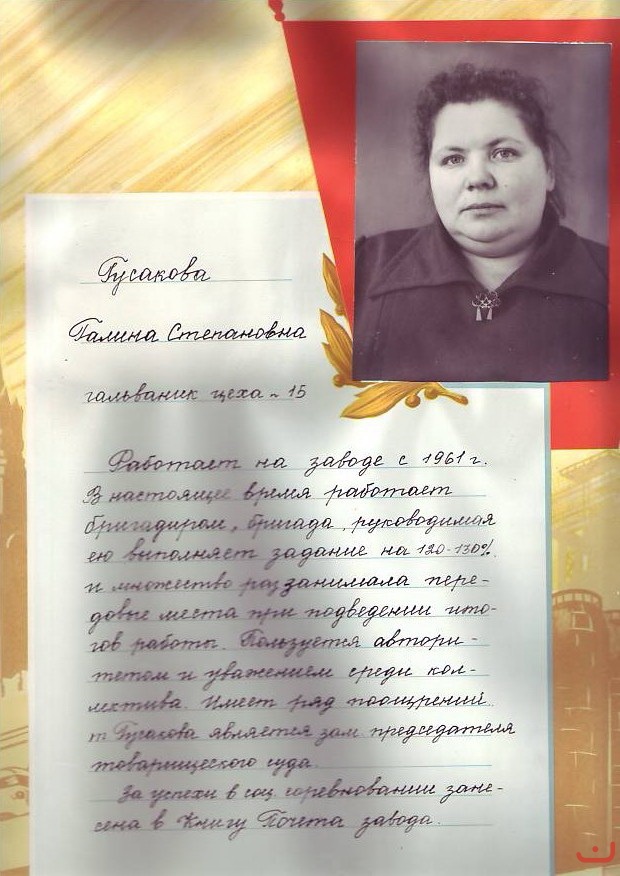 Гусакова
Галина Степановна
гальваник цеха № 15
Работает на заводе с 1961 г.
В настоящее время работает
бригадиром, бригада, руководимая
ею выполняет задание на 120-130%
и множество раз занимала пере-
довые места при подведении ито-
гов работы. Пользуется автори-
тетом и уважением среди кол-
лектива. Имеет ряд поощрений.
т. Гусакова является зам. председателя
товарищеского суда.
За успехи в соц. соревновании зане-
сена в Книгу Почета завода.